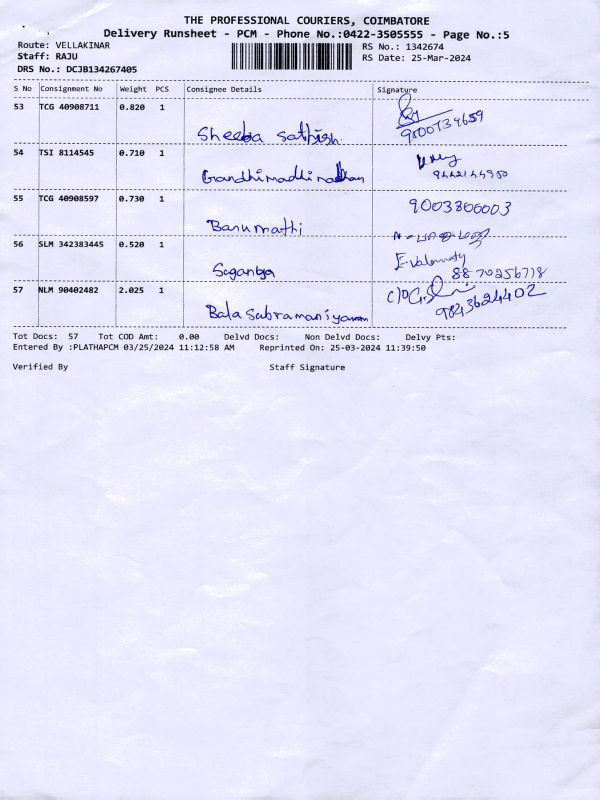 THE PROFESSIONAL COURIERS, COIMBATORE
Delivery Runsheet - PCM - Phone No.:0422-3505555 - Page No.:5
Route: VELLAKINAR RS No.: 1342674
Staff: RAJU RS Date: 25-Mar-2024
DRS No.: DCJB134267405
S No Consignment No Weight PCS Consignee Details Signature
53 TCG 40908711 0.820 1
Sheeba Sathish
54 TSI 8114545 0.710 1
Gandhimadhinadhan 9442144950
55 TCG 40908597 0.730 1 9003806003
Banumathi
56 SLM 342383445 0.520 1
Suganya 8870256718
57 NLM 90402482 2.025 1 C/O
Balasubramaniyamm 9843624402
Tot Docs: 57 Tot COD Amt: 0.00 Delvd Docs: Non Delvd Docs: Delvy Pts:
Entered By :PLATHAPCM 03/25/2024 11:12:58 AM Reprinted On: 25-03-2024 11:39:50
Verified By Staff Signature